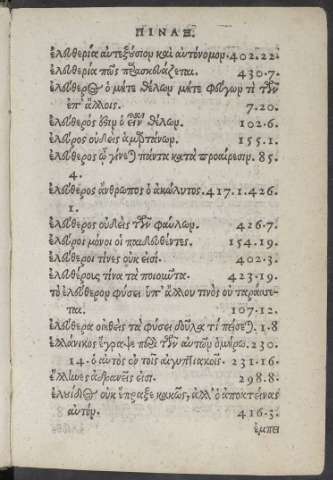 ΠΙΝΑΞ.
ἐλευθερία αὐτεξούσιον καὶ αὐτόνομον. 402.22.
ἐλευθερία πῶς παρασκευάζεται. 430.7.
ἐλεύθερος ὁ μήτε θέλων μήτε φεύγων τι τῶν
ἐπ' ἄλλοις. 7.20.
ἐλεύθερός ἐστιν ὁ θέλων. 102.6.
ἐλεύθερος οὐδεὶς ἁμαρτάνων. 155.1.
ἐλεύθερος ᾧ γίνεται πάντα κατὰ προαίρεσιν. 85.
4.
ἐλεύθερος ἄνθρωπος ὁ ἀκώλυτος. 417.1.426.
1.
ἐλεύθερος οὐδεὶς τῶν φαύλων. 426.7.
ἐλεύθεροι μόνοι οἱ παιδευθέντες. 154.19.
ἐλεύθεροι τίνες οὐκ εἰσί. 402.3.
ἐλευθέρους τίνα τὰ ποιοῦντα. 423.19.
τὸ ἐλεύθερον φύσει ὑπ' ἄλλου τινὸς οὐ ταράσσε-
ται. 107.12.
ἐλεύθερα τὰ φύσει δοῦλα τί 1.8
ἑλλάνικος ἔγραψε τῶν αὐτῶν ὁμήρῳ. 230.
14. ὁ αὐτὸς ἐν τοῖς αἰγυπτιακοῖς. 231.16.
ἕλληνες ἀδρανεῖς εἰσι. 298.8.
οὐκ ἔπραξε κακῶς, ἀλλ' ὁ ἀποκτείνας
αὐτόν. 416.3.
ἐμπει